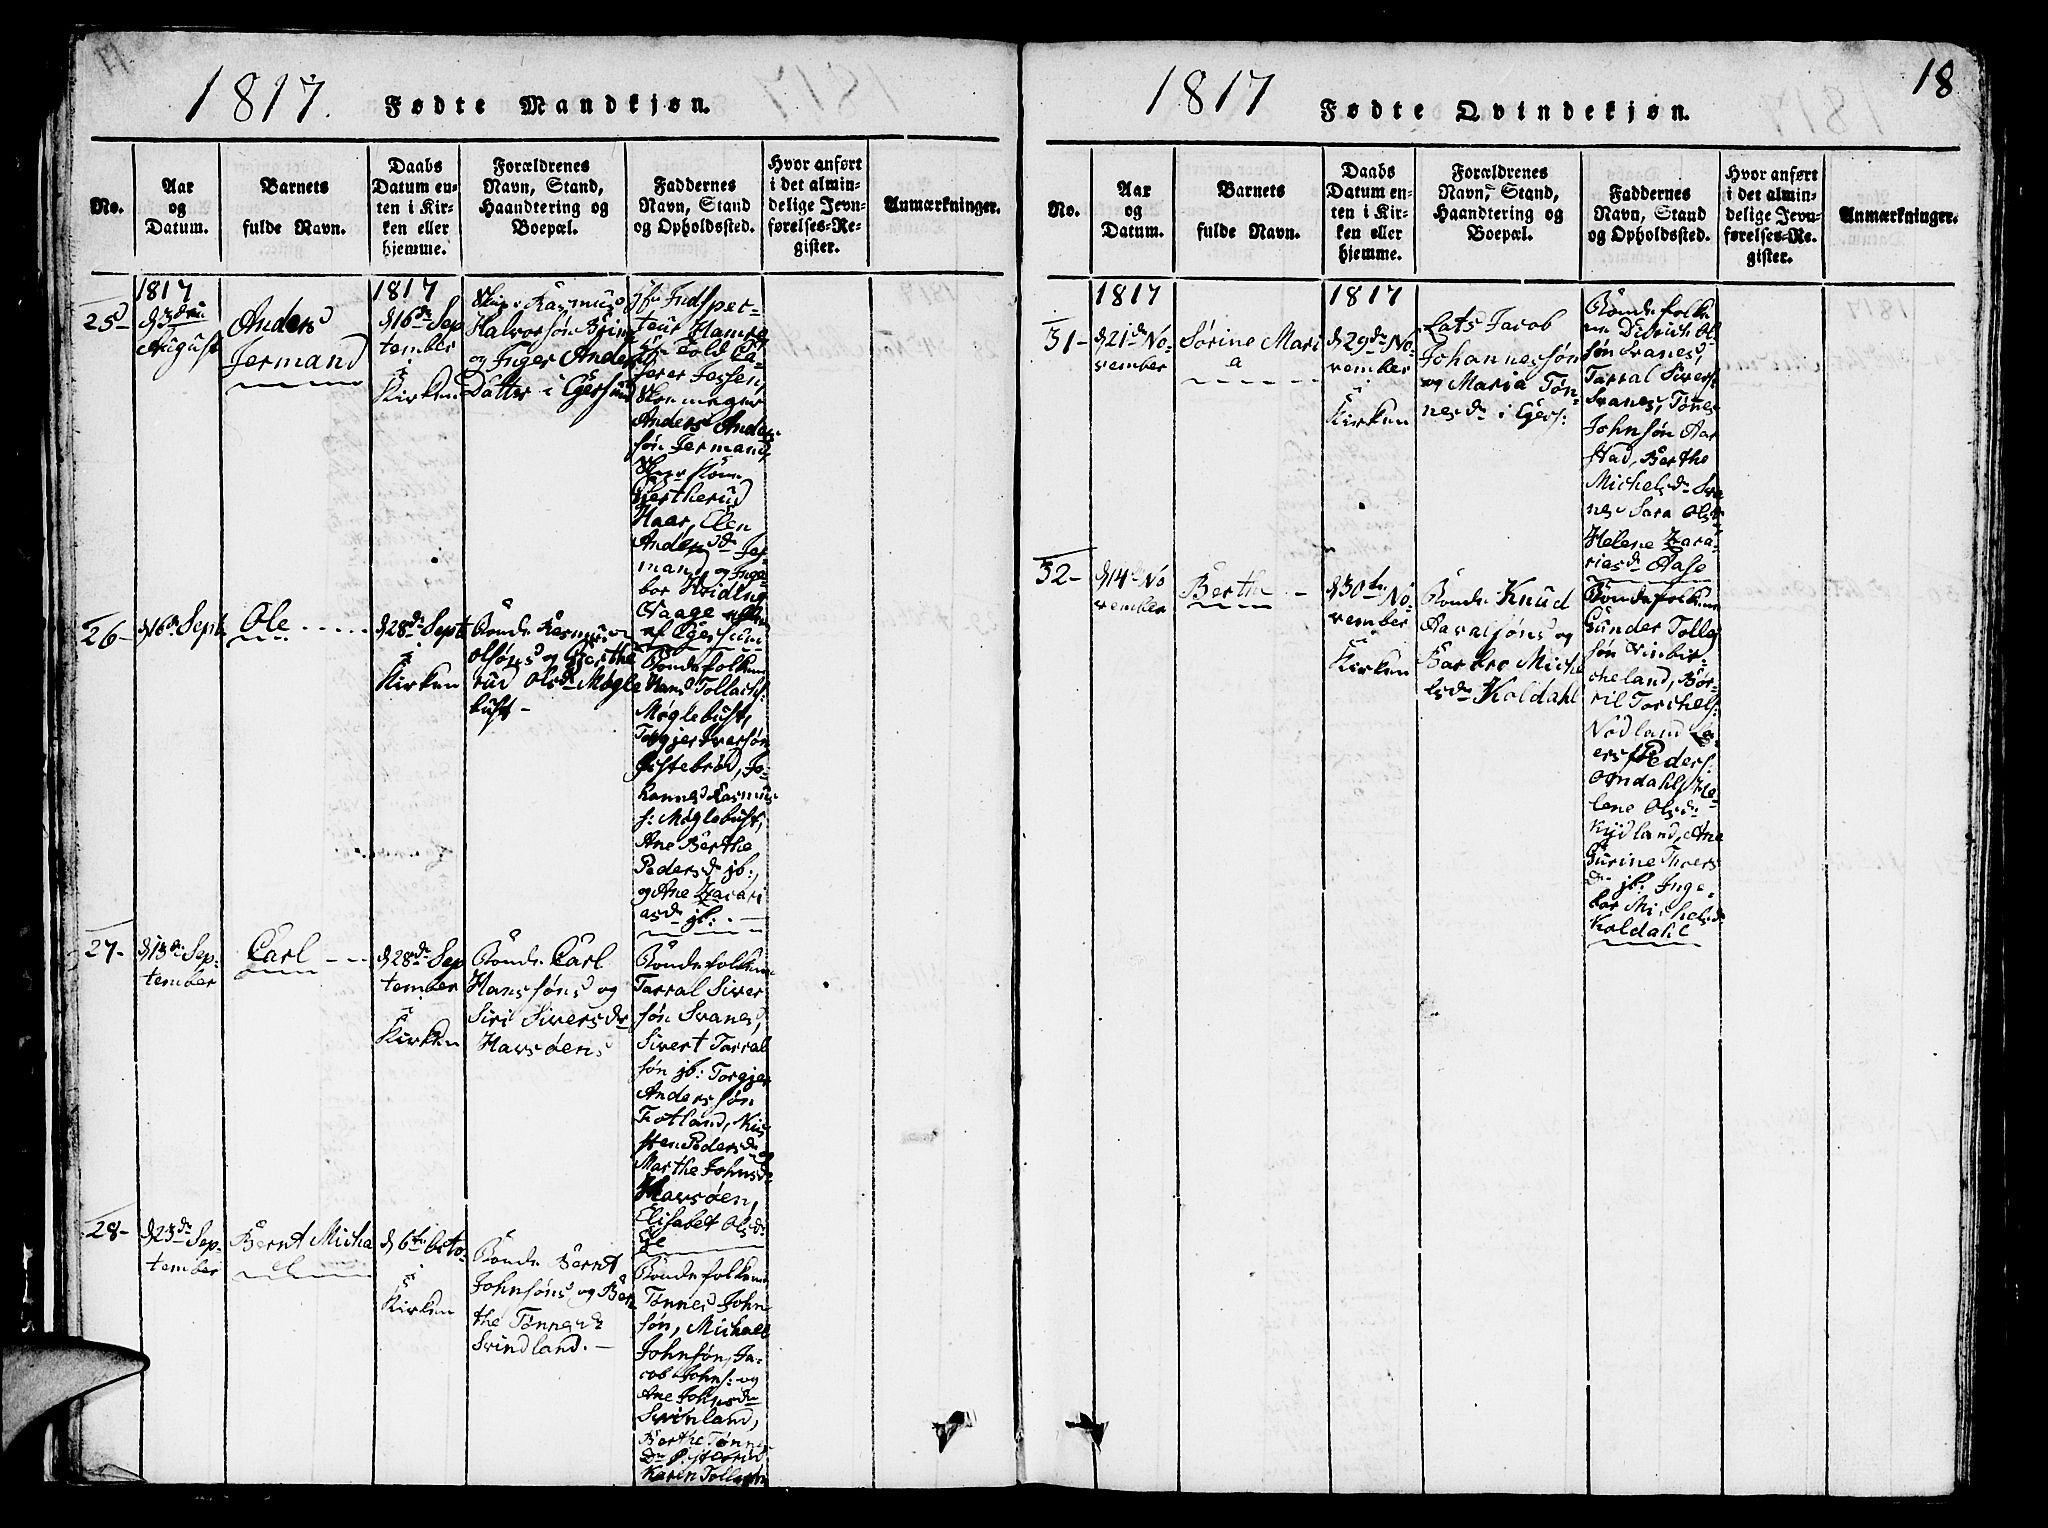 1817. Fødte Mandkjøn.
No.
Aar
og
Datum.
Barnets
fulde Navn.
Daabs
Datum en-
ten i Kir-
ken eller
hjemme.
Forældrenes
Navn, Stand,
Haandtering og
Boepæl.
Faddernes
Navn, Stand
og Opholdssted.
Hvor anført
i det almin-
delige Jevn-
førelses-Re-
gister.
Anmærkninger.
25-
1817
d 3die
August
Anders
Jermand
1817
d 16de Sep
tember
i
Kirken
Rasmus
Halvorsøn
og Inger Anders
Datter i Egersund
Hr. Indsper-
teur
Jessen
Anders Anders
søn Jermand,
Haar, Elen
Andersdr Jer-
mand og Inge-
bor
Vaage
af Egersund
26-
d 16de Sept
Ole
d 28de Sept
i
Kirken
Bonde Rasmus
Olsøns og Berthe
rud Olsdr Møgle
bust-
Bondefolkene
Hans Tollachs:
Møglebust,
Torgjer Iversøn
Gystebrød, Jo-
hannes Rasmus
s: Møglebust,
Ane Berthe
Pedersdr jb:,
og Ane Zacari
asdr jb:.-
27-
d 13de Sep-
tember
Carl
d 28de Sep
tember
i
Kirken
Bonde Carl
Hanssøns og
Siri Siversdr
Havsøens
Bondefolkene
Tarral Siver
søn Svanes,
Sivert Tarral
søn jb: Torgjer
Anderssøn
Fotland, Kir
sten Pedersdr og
Marthe Johnsdr
Havsøen,
Elisabet Olsdr
Eje
28-
d 23de Sep-
tember
Bernt Micha
el
d 6te Octo-
i
Kirken
Bonde Bernt
Johnsøns og Ber
the Tønnesdr
Svindland.-
Bondefolkene
Tønnes John-
søn, Michael
Johnsøn, Ja-
cob Johns: og
Ane Johnsdr
Svinland,
Berthe Tønnes
Dr
Karen Tollagsdr
1817 Fødte Qvindekjøn.
18
No.
Aar
og
Datum.
Barnets
fulde Navn.
Daabs
Datum en-
ten i Kir-
ken eller
hjemme.
Forældrenes
Navn, Stand,
Haandtering og
Boepæl.
Faddernes
Navn, Stand
og Opholdssted.
Hvor anført
i det almin-
delige Jevn-
førelses-Re-
gister.
Anmærkninger.
31-
1817
d 21de No-
vember
Sørine Mari
a
1817
d 29de No-
vember
i
Kirken
Lots Jacob
Johannessøn
og Maria Tøn-
nesdr i Egers:
Bondefolke
ne Didrich Ol-
søn Svanes,
Tarral Sivers:
Svanes, Tønes
Johnsøn Aar
stad, Berthe
Michelsdr Sva
nes Sara Olsdr
Helene Zaca-
riesdr Aase
32-
d 14de No
vember
Berthe
d 30te No-
vember
i
Kirken
Bonde Knud
Aavalsøns og
Barbro Miche
lsdr Koldahl
Bondefolkene
Gunder Tolle
søn Vinbir
cheland, Bør-
ril Torchels:
Nodland La-
ers Peders:
Omdahl, He-
lene Olsdr
Kydland, Ane
Gurine Thores
dr jb: Inge-
bor Michelsdr
Koldahl